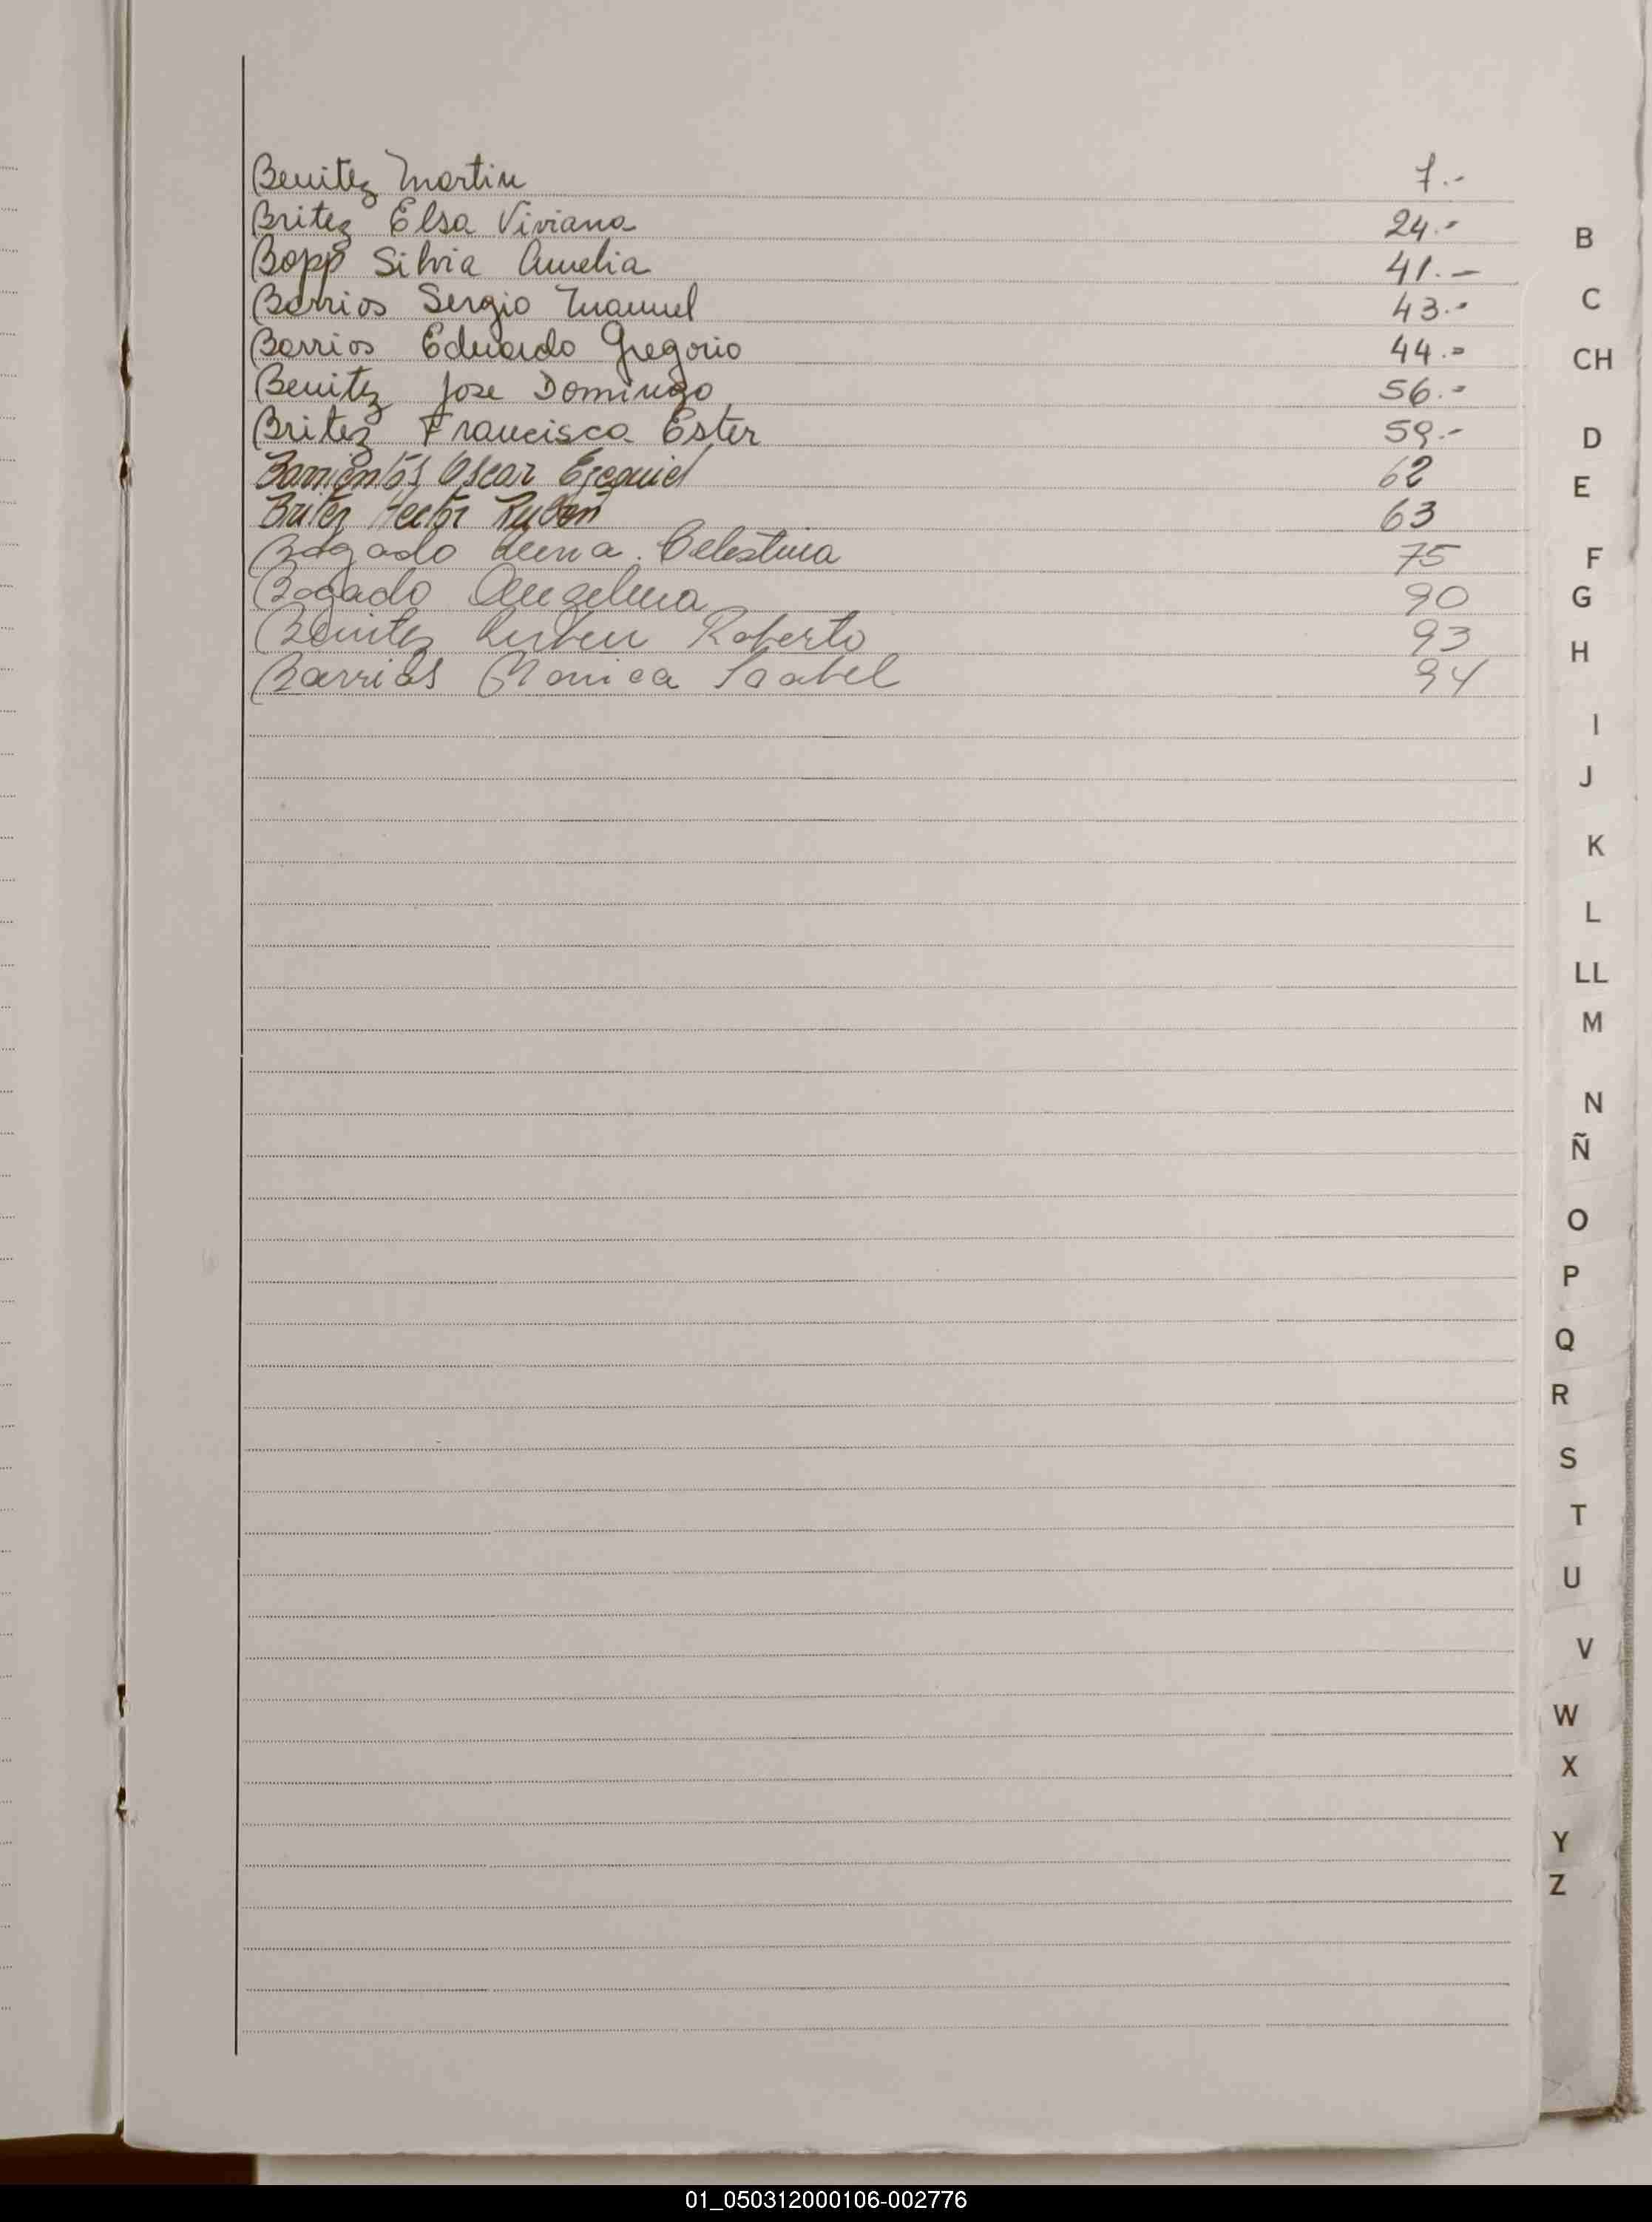 Benitez Martin 7.-
Britez Elsa Viviana 24.-
Bopp Silvia Amelia 41.-
Barrios Sergio Manuel 43.-
Barrios Eduardo Gregorio 44.-
Benitez Jose Domingo 56.-
Britez Francisca Ester 59.-
Barrientos Oscar Ezequiel 62
Britez Hector Ruben 63
Bogado Celestina 75
Bogado Angelina 90
Benitez Ruben Roberto 93
Barrios Monica Isabel 94
B
C
CH
D
E
F
G
H
I
J
K
L
LL
M
N
Ñ
O
P
Q
R
S
T
U
V
W
X
Y
Z
01_050312000106-002776